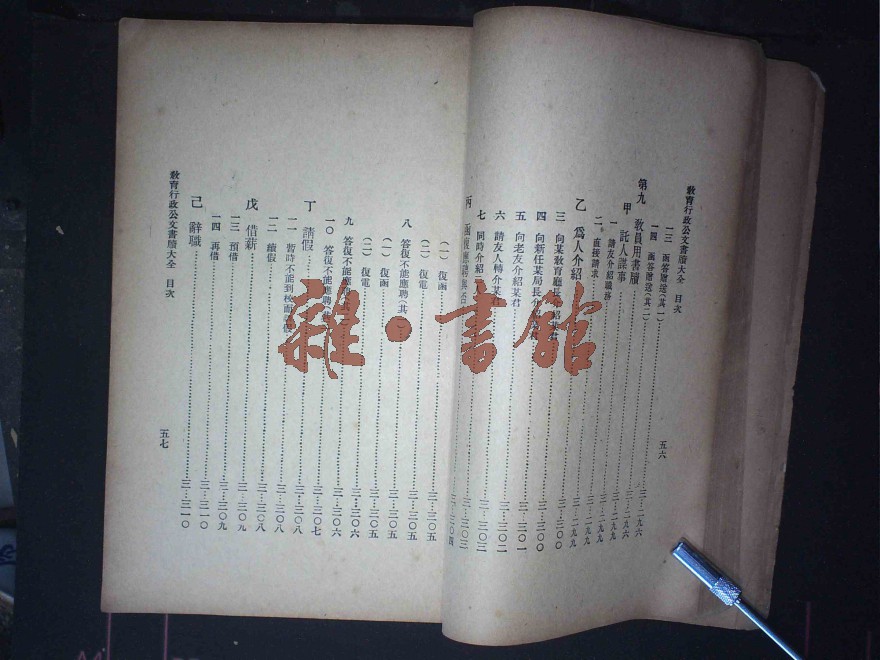 教育行政公文書牘大全 目次
一三 函答贈送(其一)
一四 函答贈送(其二)……三…二九六
第九 教員用書牘……三…二九六
甲 託人謀事……三…二九九
一 請友介紹職務……三…二九九
二 直接請求……三…二九九
乙 為人介紹……三…二九九
三 向某教育廳長介紹某君……三…三〇〇
四 向新任某局長介紹……三…三〇〇
五 向老友介紹某君……三…三〇一
六 請友人轉介某君……三…三〇二
七 同時介紹……三…三〇三
丙 函復應聘與否……三…三〇三
五六
(一)復函……三…三〇五
(二)復電……三…三〇五
八 答復不能應聘(其一)……三…三〇五
(一)復函……三…三〇五
(二)復電……三…三〇五
九 答復不能應聘……三…三〇六
一〇 答復不能應聘……三…三〇六
丁 請假……三…三〇七
一一 暫時不能到校而請假……三…三〇八
一二 續假……三…三〇八
戊 借薪……三…三〇八
一三 預借……三…三〇九
一四 再借……三…三〇九
己 辭職……三…三一〇
教育行政公文書牘大全 目次
五七
雜·書館